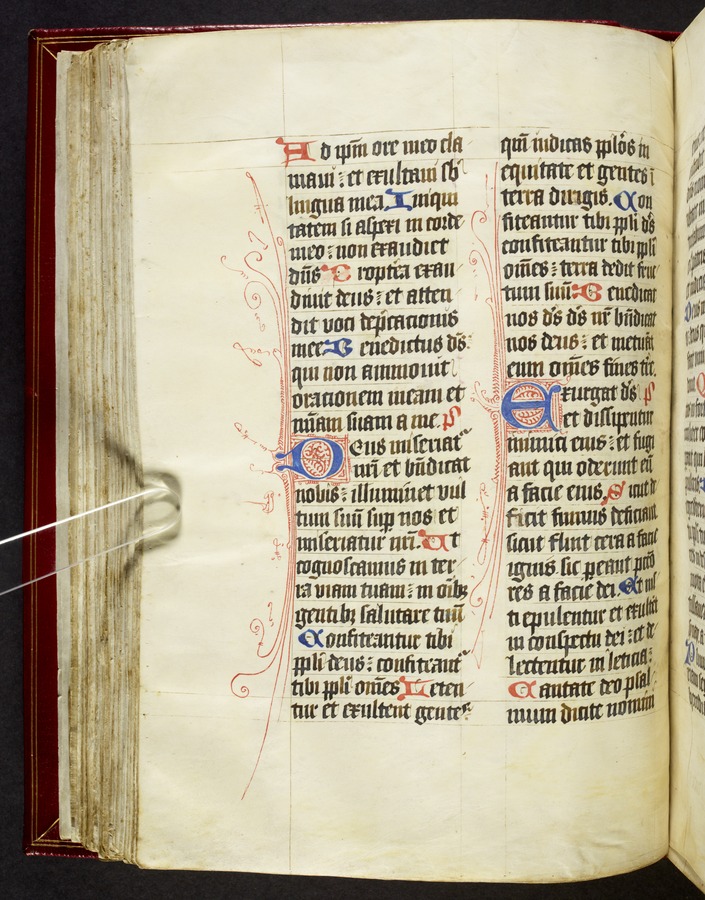 Ad ip̄m ore meo cla
maui : et exultaui sb̄
lingua mea. Iniqui
tatem si aspexi in corde
meo : non exaudiet
dn̄s Propt̄ea exau
diuit deus : et atten
dit voci dep̄cacionis
mee Benedictus ds̄
qui non ammouit
orationem meam et
mīam suam a me. p̄s
Deus misereat᷑
nr̄i et bn̄dicat
nobis : illuminet vul
tum suū sup̄ nos et
misereatur nr̄i. Ut
cognoscamus in ter
ra viam tuam : in oīb;
gentib; salutare tuū
Confiteantur tibi
pp̄li deus : confiteant᷑
tibi pp̄li om̄es Leten
tur et exultent gentes
qm̄ iudicas pp̄los in
equitate et gentes ī
terra dirigis. Con
fiteantur tibi pp̄li ds̄
confiteantur tibi pp̄li
om̄es : terra dedit fruc
tum suū Benedicat
nos ds̄ ds̄ nr̄ bn̄dicat
nos deus : et metuāt
eum om̄es fines tr̄e.
Exurgat ds̄ p̄s
et dissipentur
inimici eius : et fugi
ant qui oderunt eū
a facie eius. Sicut de
ficit fumus deficiant
sicut fluit cera a facie
ignis. sic peant pcc̄o
res a facie dei. Et ius
ti epulentur et exultēt
in conspectu dei : et de
lectentur in leticia :
Cantate deo psal
mum dicite nomini